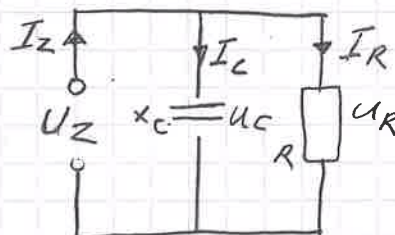 I_Z I_C I_R
U_Z X_C U_C U_R
R